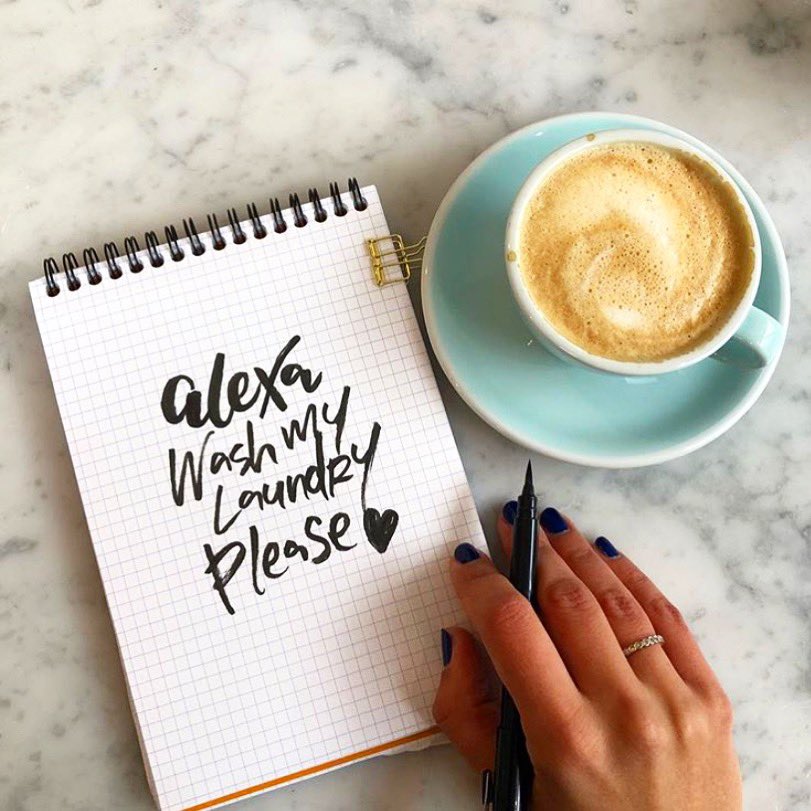 alexa
Wash my
Laundry
Please